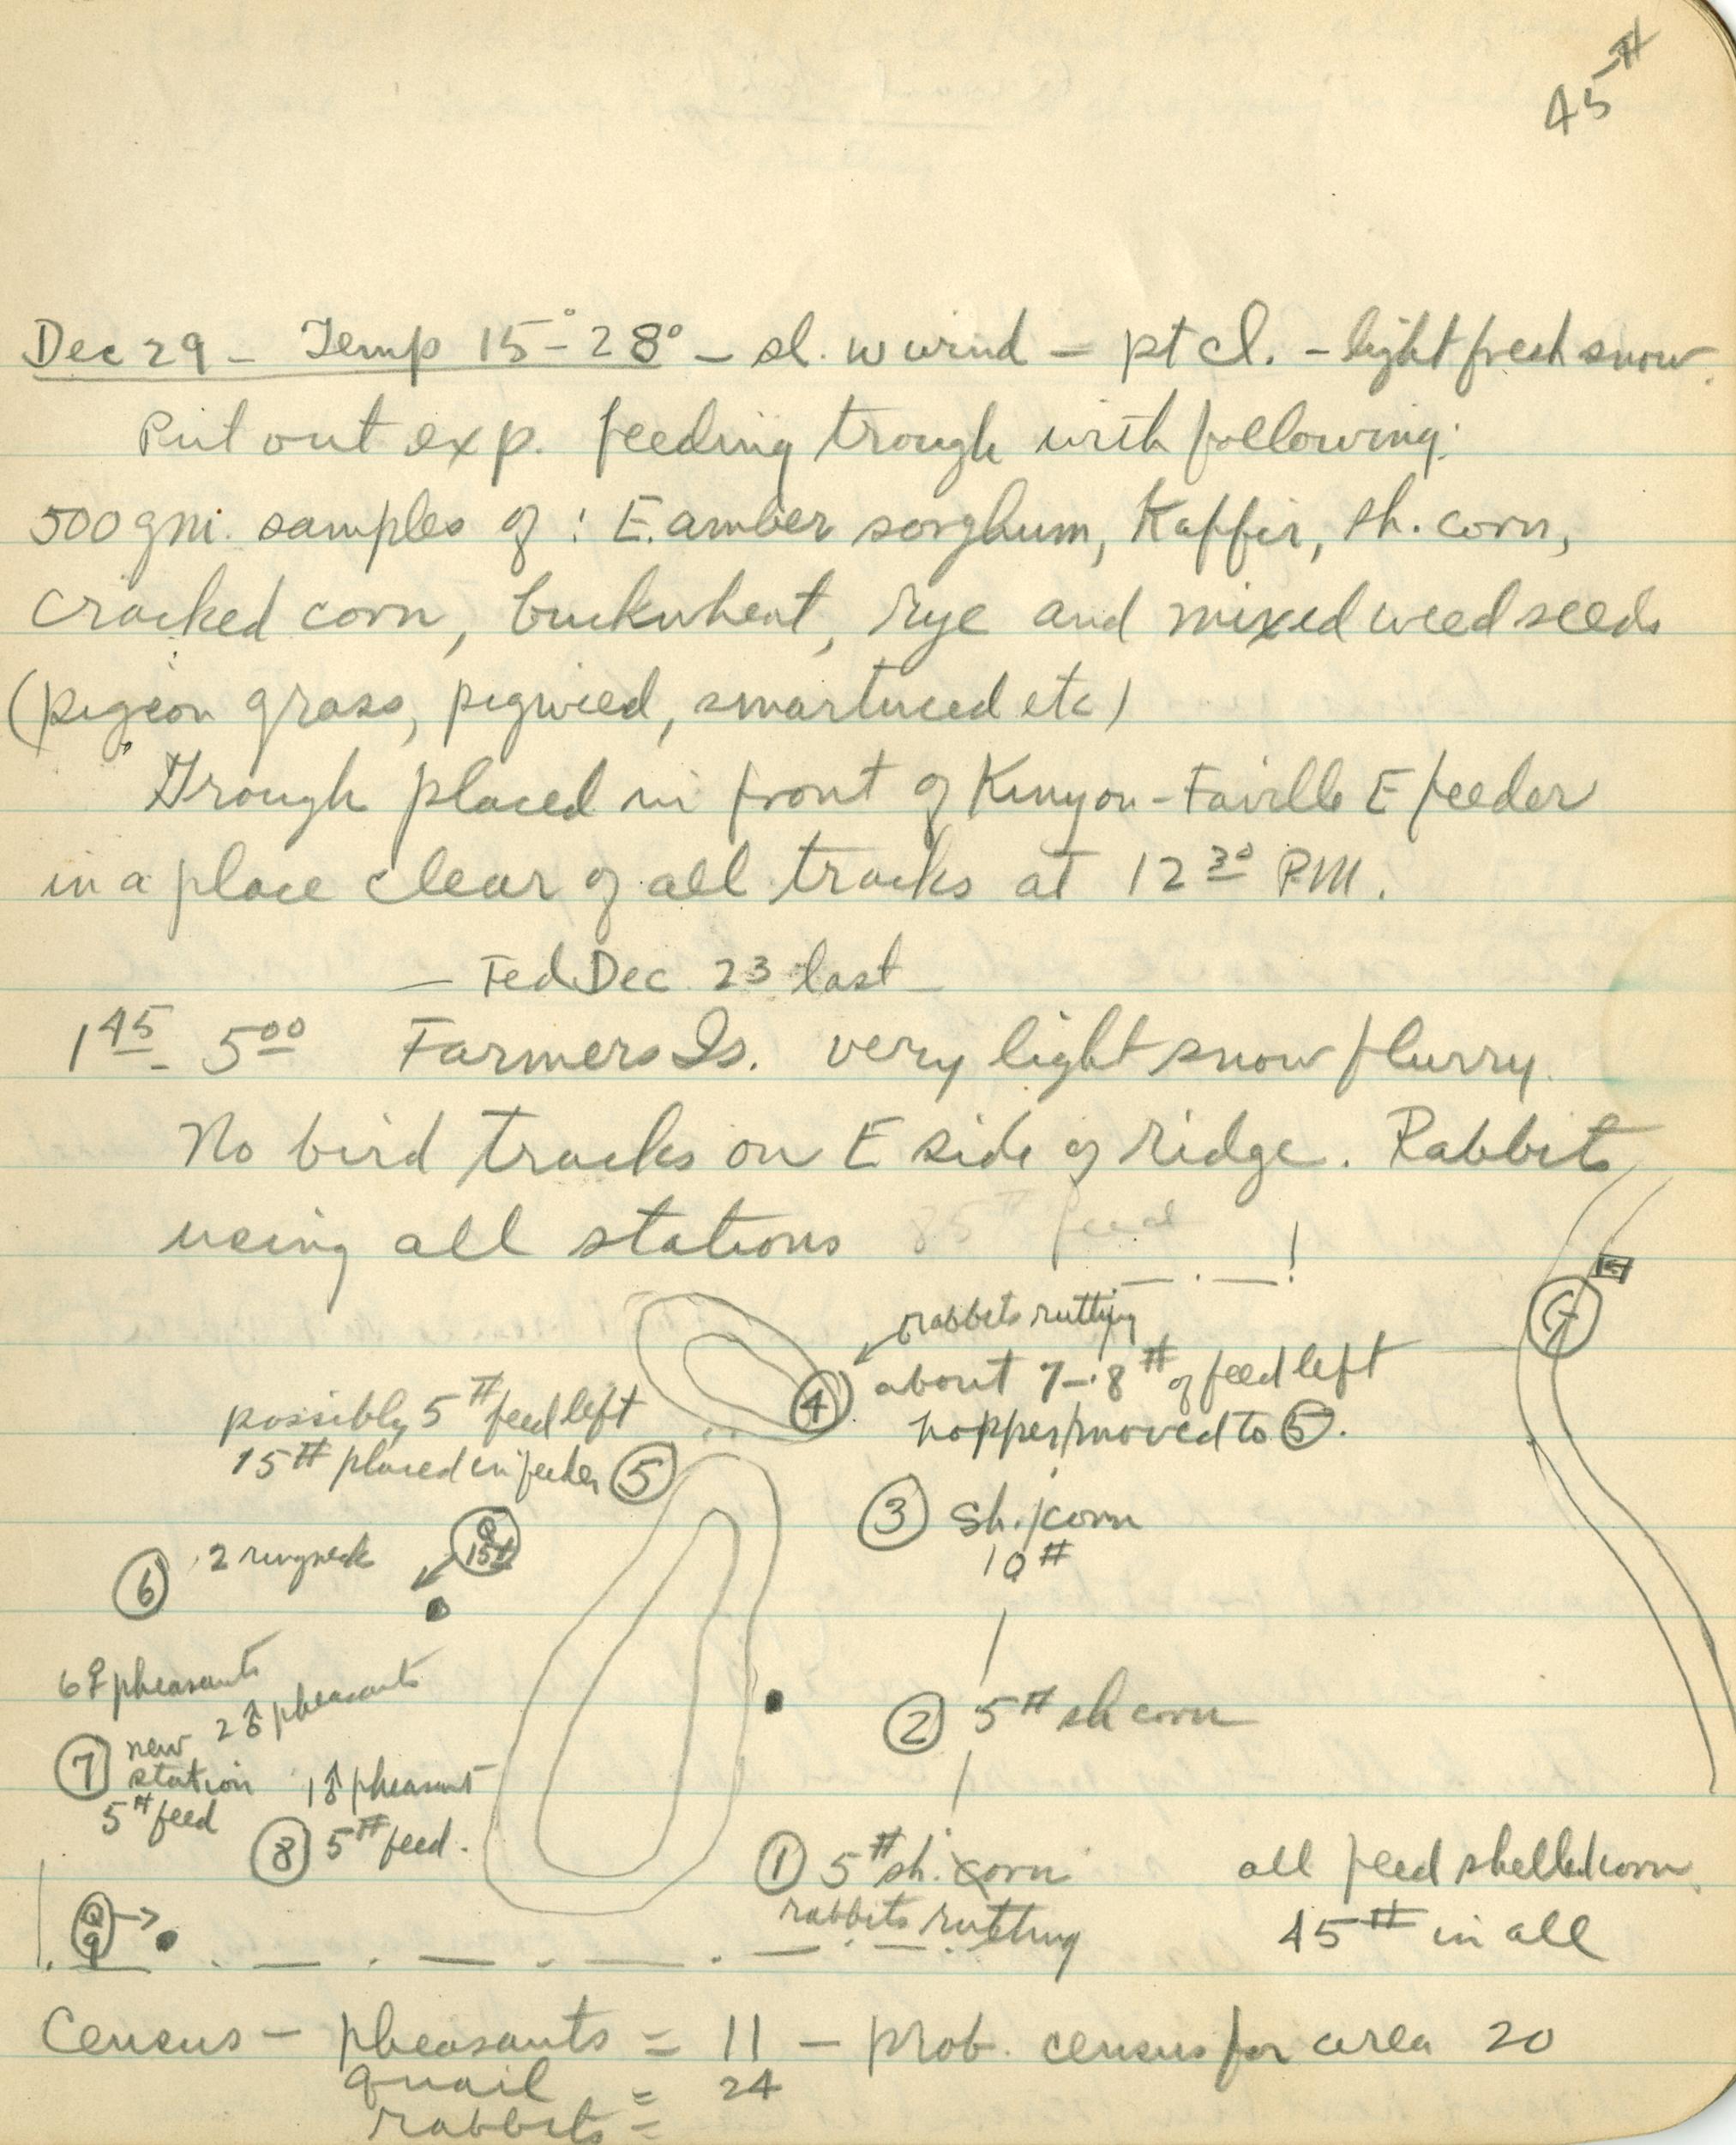 45#
Dec 29 - Temp 15°-28° - sl. w wind - pt cl. - light fresh snow.
Put out exp. feeding trough with following:
500 gm. samples of : E. amber sorghum, Kaffir, sh. corn,
cracked corn, buckwheat, rye and mixed weed seeds
(pigeon grass, pigweed, smartweed etc)
Trough placed in front of Kenyon - Faville E feeder
in a place clear of all tracks at 12 30 P.M.
- Fed Dec 23 last -
1 45 - 5 00 Farmers Is. very light snow flurry.
No bird tracks on E side of ridge. Rabbits
using all stations 85# feed
rabbits rutting
④ about 7-8# of feed left
hopper moved to ⑤.
possibly 5# feed left
15# placed in feeder ⑤
③ Sh. corn
10#
Q
15±
⑥ 2 ringneck
6♀ pheasants
2♂ pheasants
② 5# sh corn
⑦ new
station
5# feed
1♂ pheasant
⑧ 5# feed.
① 5# sh. corn
rabbits rutting
all feed shelled corn
45# in all
Q
9
Census - pheasants = 11 - prob. census for area 20
quail = 24
rabbits =